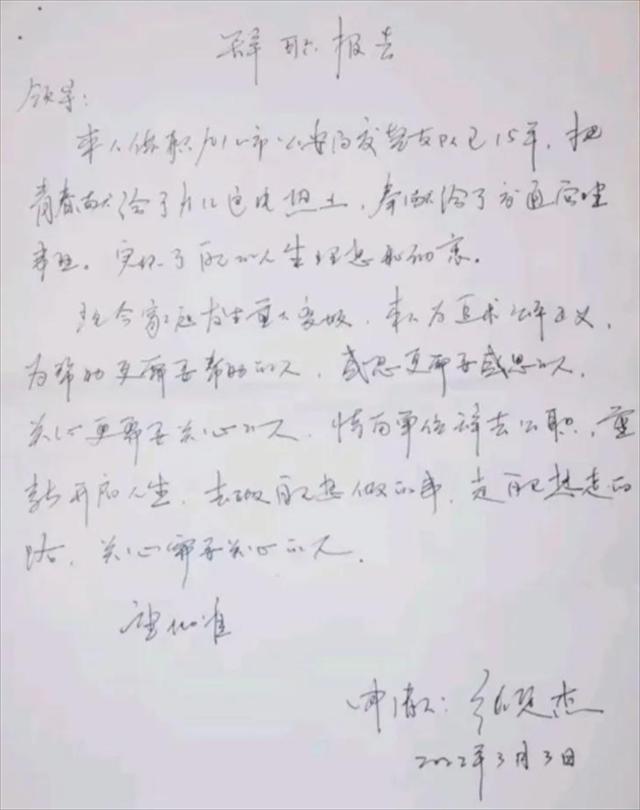 辞职报告
领导:
本人供职九江市公安局交警支队已15年,把
青春献给了九江这片热土,奉献给了交通管理
事业。实现了自己的人生理想和初衷。
现今家庭发生重大变故,本人为追求公平正义,
为帮助更需要帮助的人,感恩更需要感恩的人,
关心更需要关心的人,特向单位辞去公职,重
新开启人生,去做自己想做的事,走自己想走的
路,关心需要关心的人。
望批准
申请人:杰
2022年3月3日